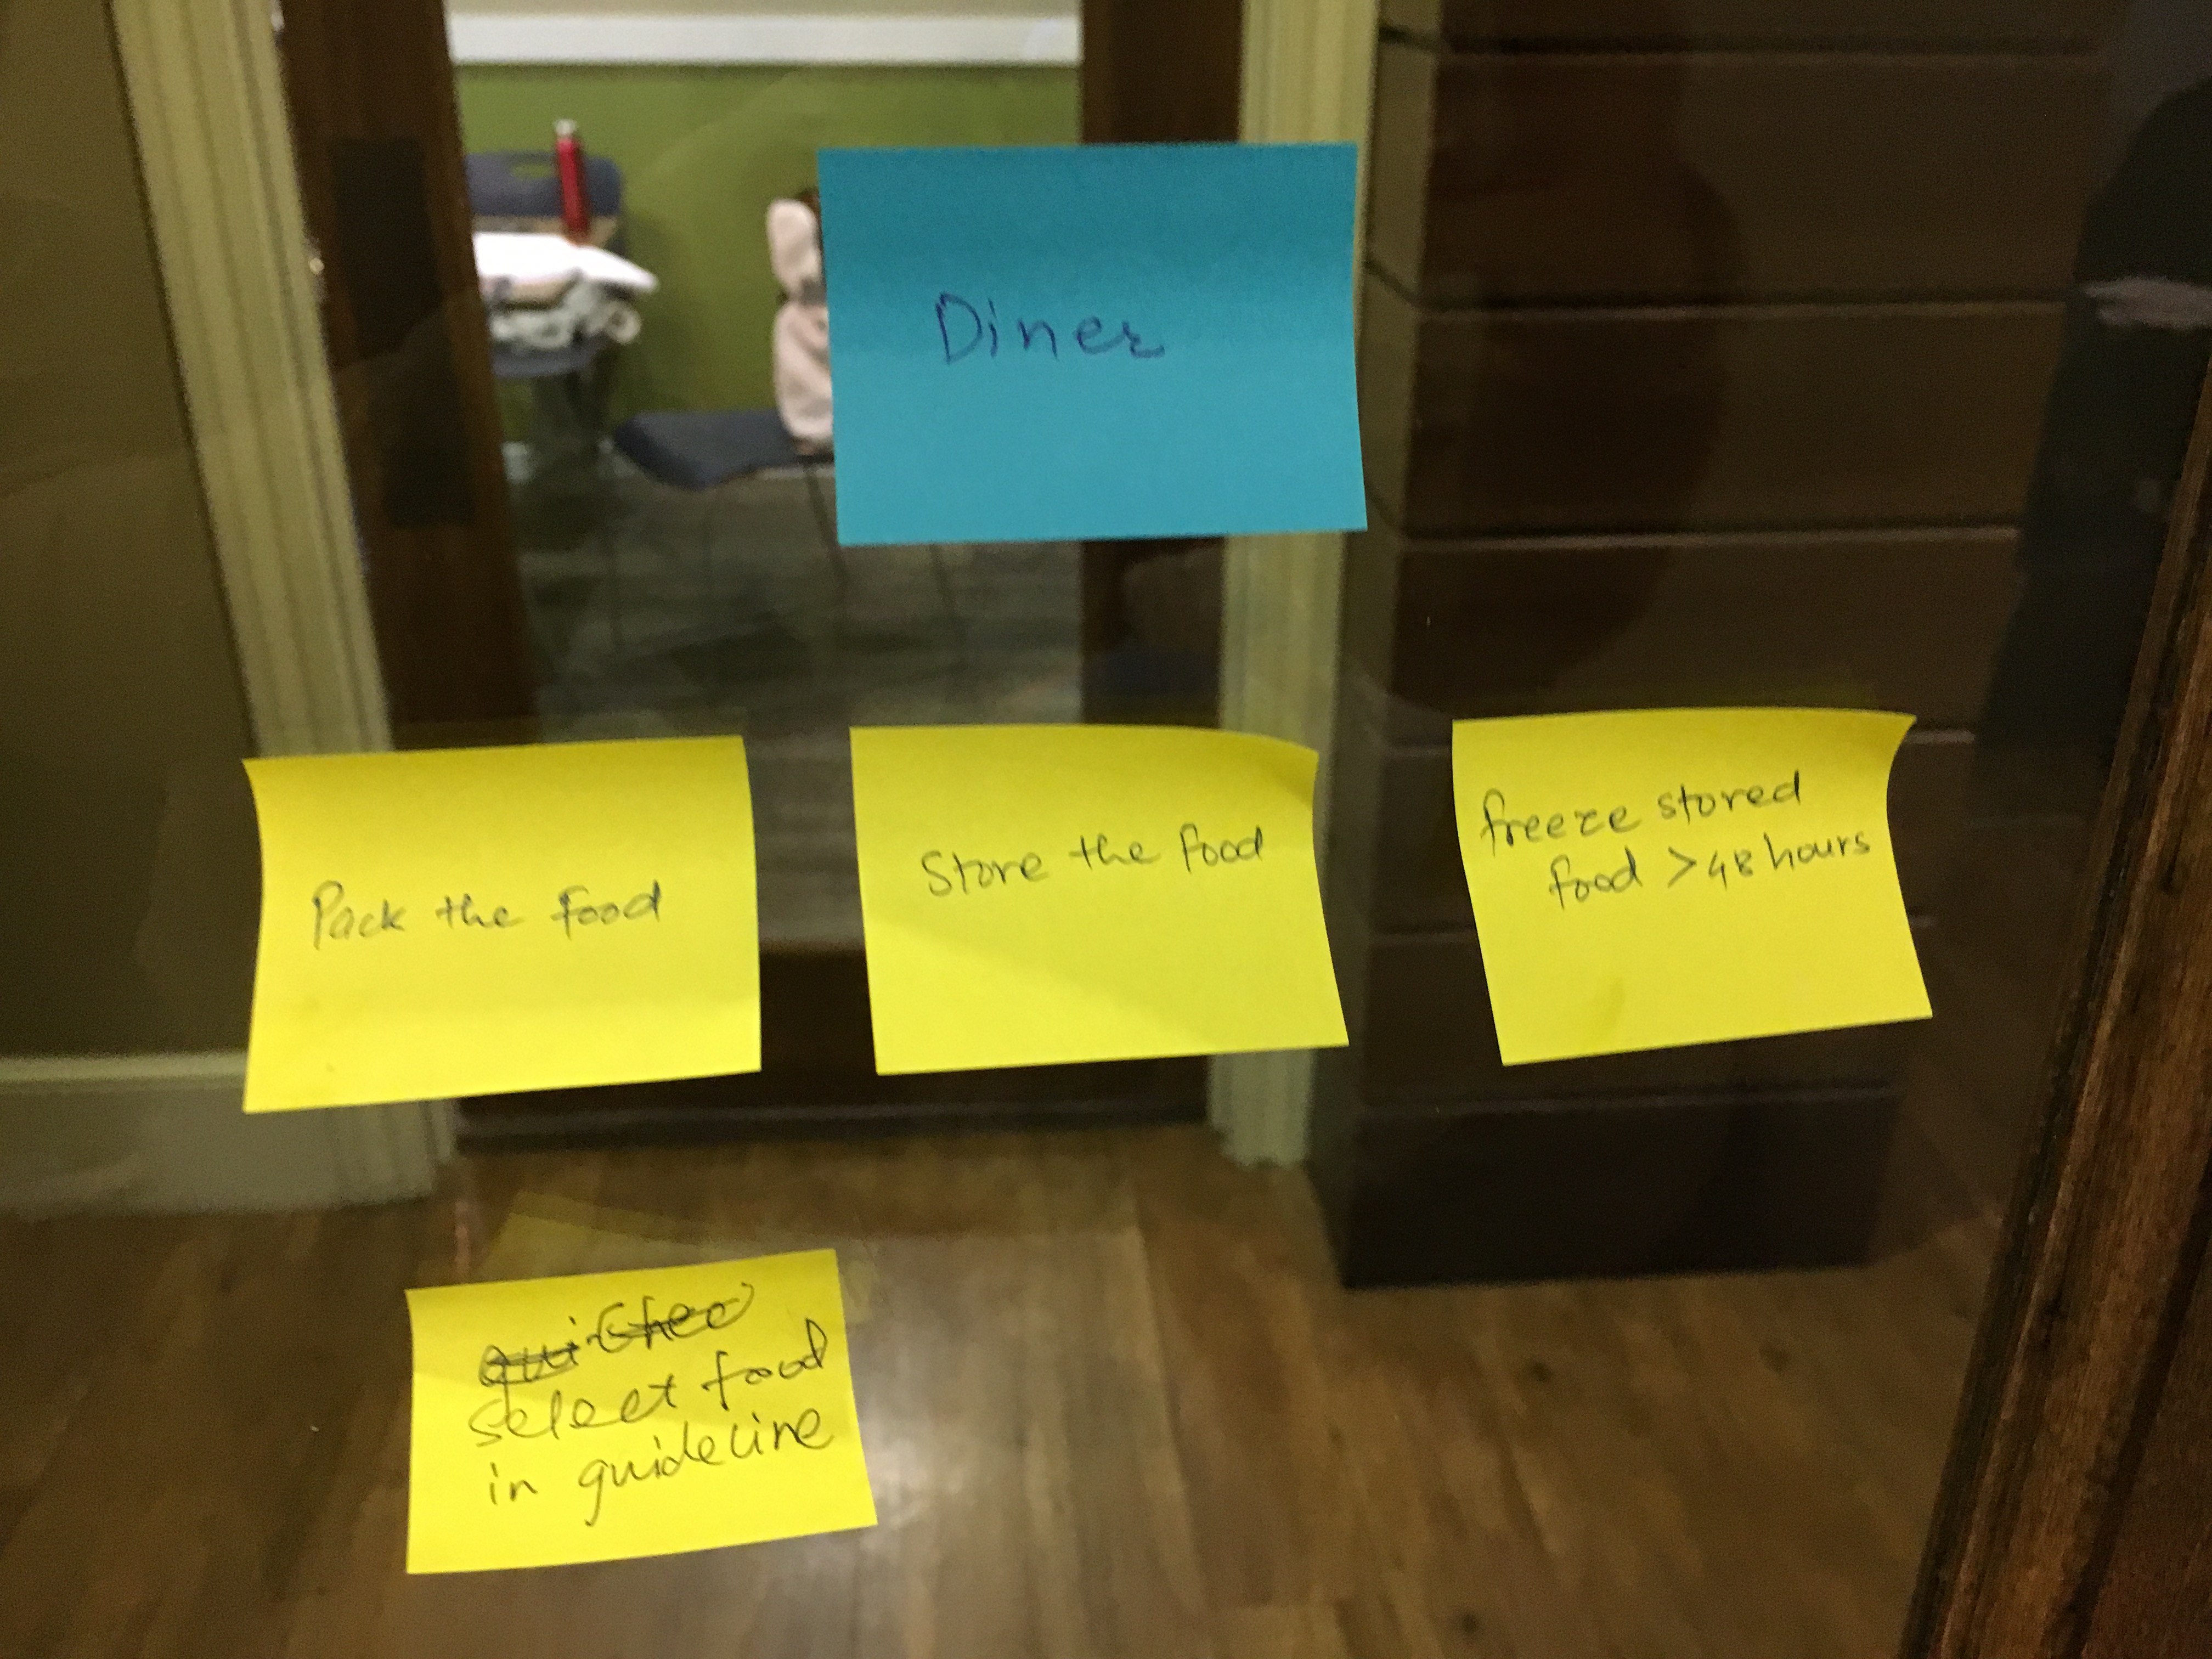 Diner
Pack the food
Store the food
freeze stored
food > 48 hours
select food
in guideline